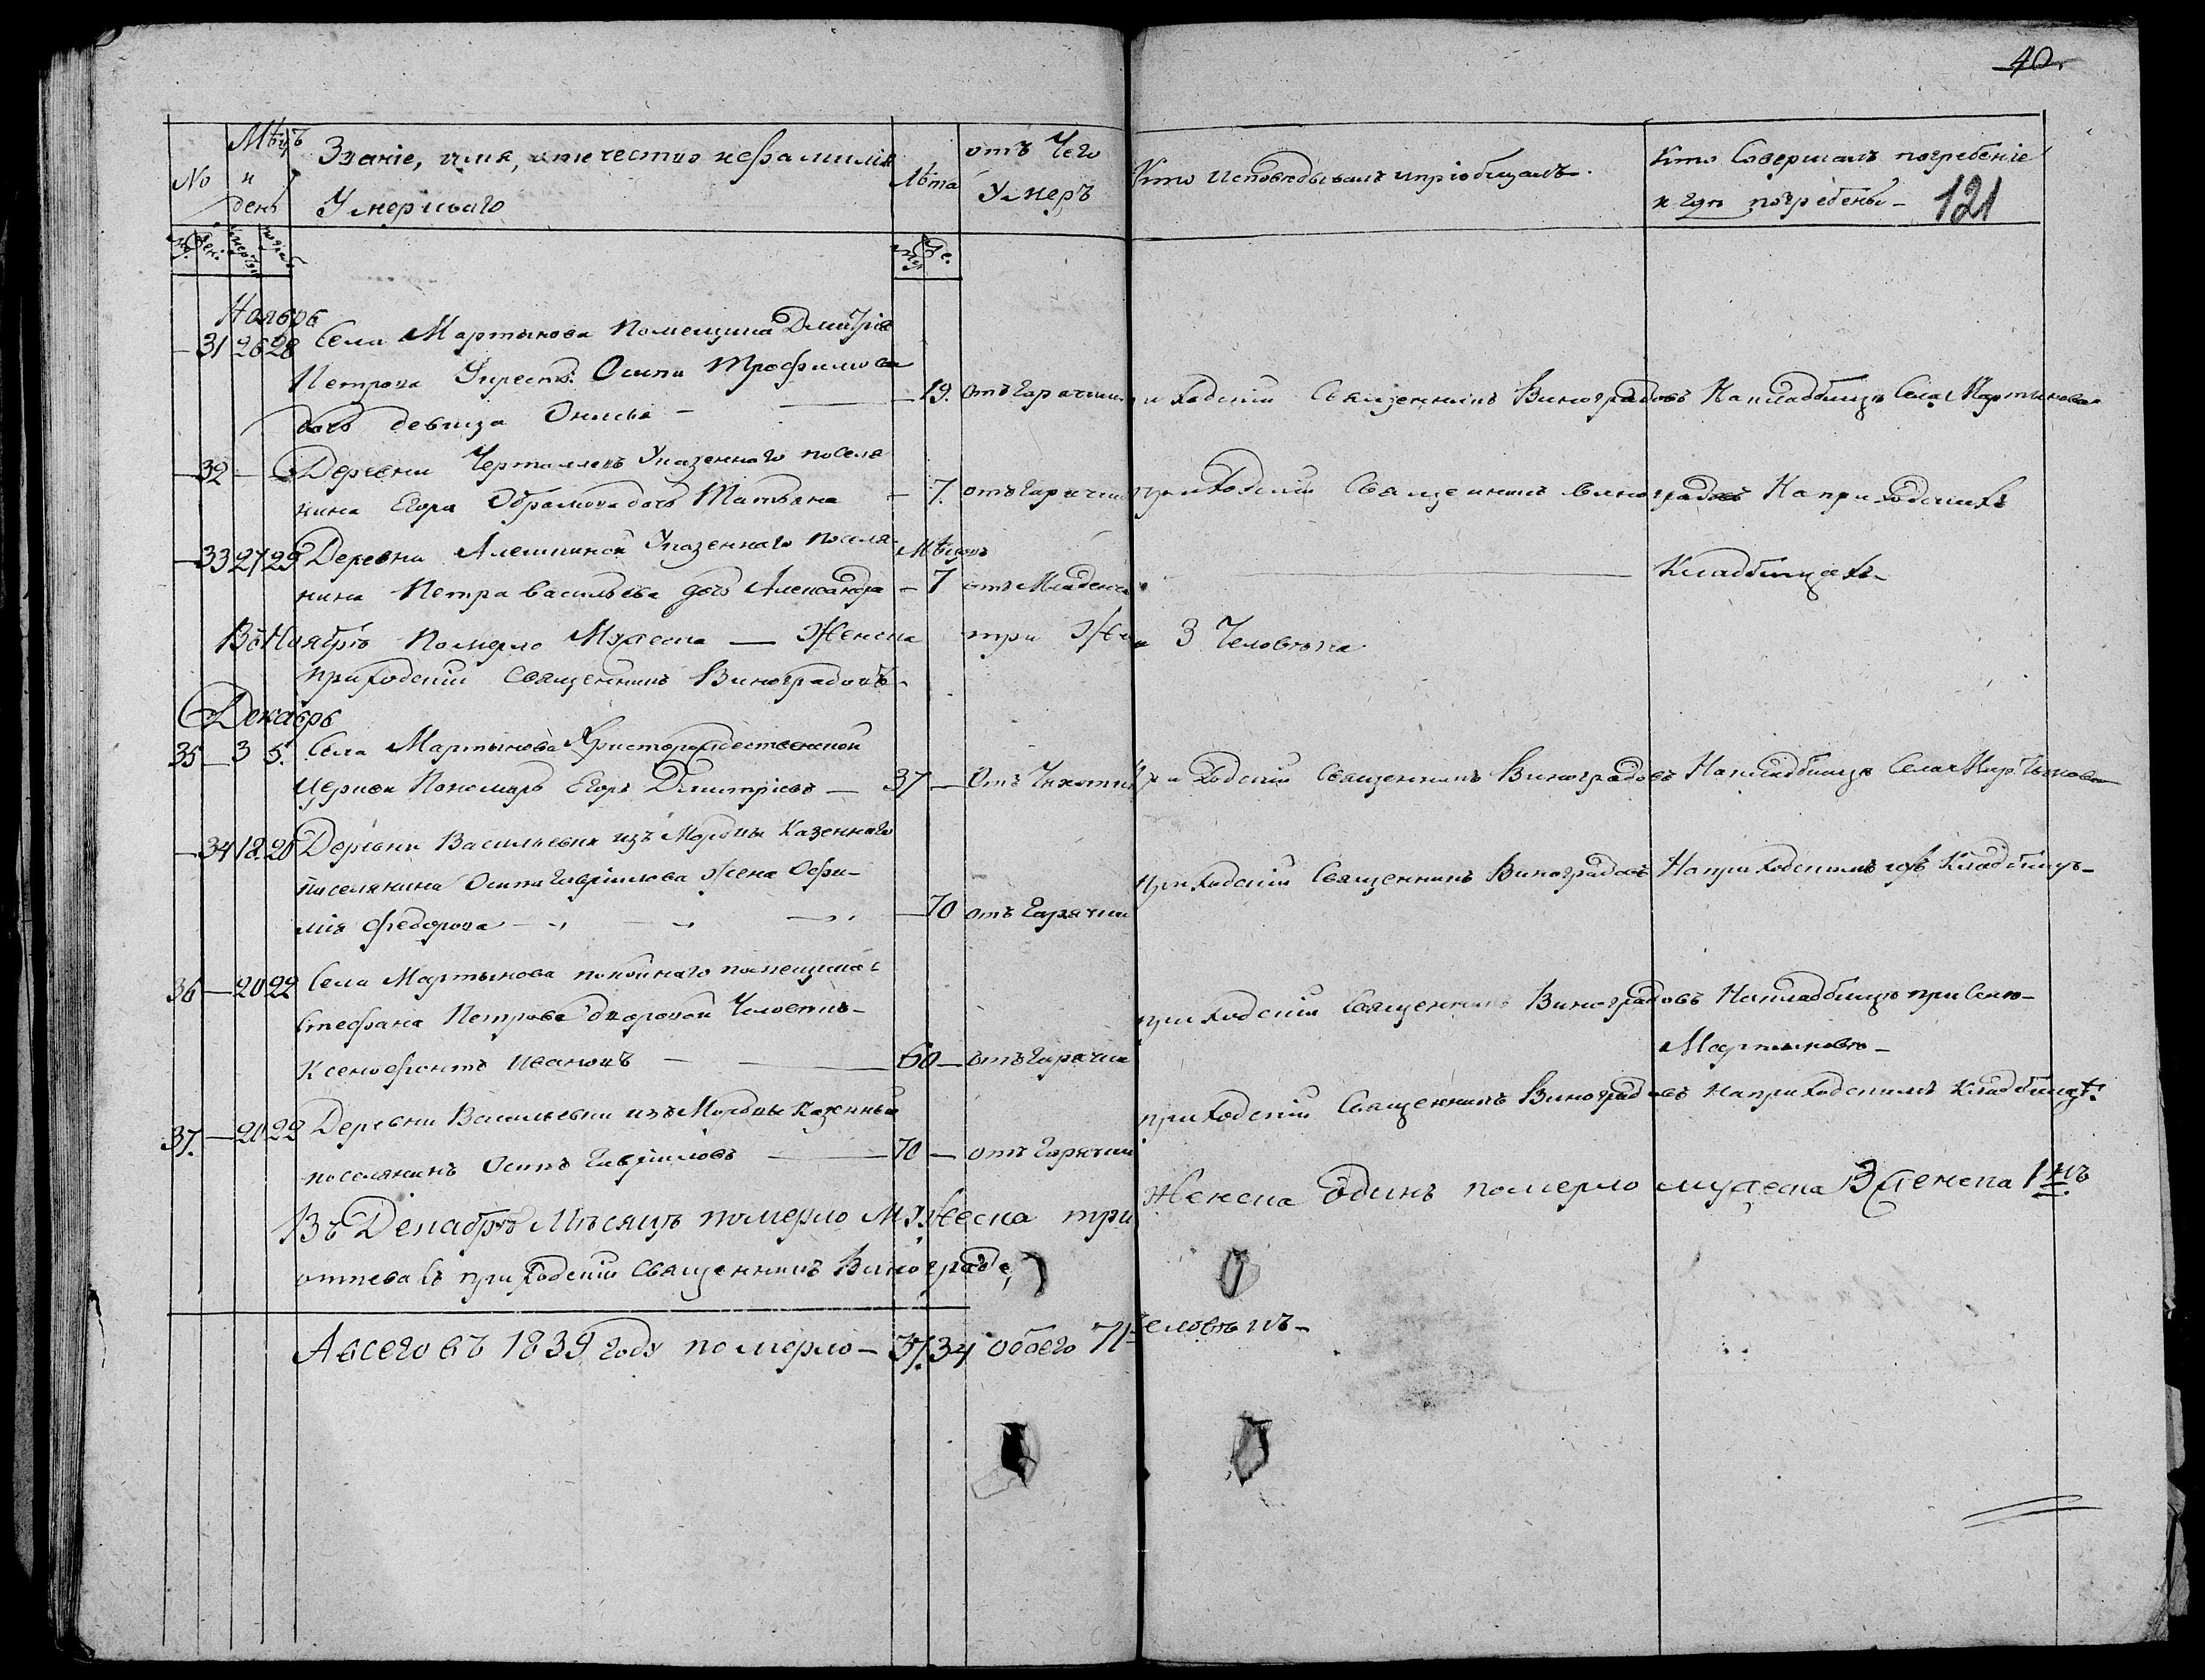 40.
121
№
Мѣцъ
и
день
Званіе, имя, отичество и фамилія
Умершаго
Лѣта
отъ Чего
Умеръ
Кто исповѣдывалъ и пріобщалъ.
Кто Совершалъ погребеніе
и гдѣ погребены
Ноябрь
31 26 28 Села Мартынова Помещика Дмитрія
Петрова Крест: Осипа Трофимова
дочь девица — 19. отъ Гарячки приходскій Священникъ Виноградовъ На кладбище Села Мартынова
32 — Деревни Казеннаго поселя
нина Егора Обрамова дочь Татьяна — 7. отъ Гарячки приходскій Священникъ Виноградовъ На приходскихъ
33 27 29 Деревни Алешкиной Казеннаго поселя-
нина Петра Васильева дочь Александра — Мѣсяцъ 7 отъ Младенч — Кладбищахъ
Въ Ноябрѣ Померло Мужеска — Женска три 3 Человѣка
приходскій Священникъ Виноградовъ
Декабрь
35 — 3 5. Села Мартынова Христорождественской
церкви Пономарь Егоръ Дмитріевъ — 37 — Отъ Чихотки приходскій Священникъ Виноградовъ На кладбище Села Мартынова
— 34 18. 20 Деревни Васильевки изъ Мордвы Казеннаго
поселянина Осипа Гаврилова жена Офи-
мія Федорова — 70 отъ Гарячки приходскій Священникъ Виноградовъ На приходскомъ Кладбищѣ
36 — 20 22 Села Мартынова покойнаго помещика
Стефана Петрова дворовой Человекъ
Ксенофонтъ Ивановъ — 60 — отъ Гарячки приходскій Священникъ Виноградовъ На кладбище при Селѣ
Мартыновѣ
37. — 21 22 Деревни Васильевки изъ Мордвы Казенный
поселянинъ Осипъ Гавриловъ — 70 — отъ Гарячки приходскій Священникъ Виноградовъ На приходскомъ Кладбищѣ
Въ Декабрѣ Мѣсяцѣ померло Мужеска три Женска Одинъ померло мужеска 3 женска 1нъ
отпевалъ приходскій Священникъ Виноградо
А всего въ 1839 году померло — 37. 34 обоего 71 человѣкъ